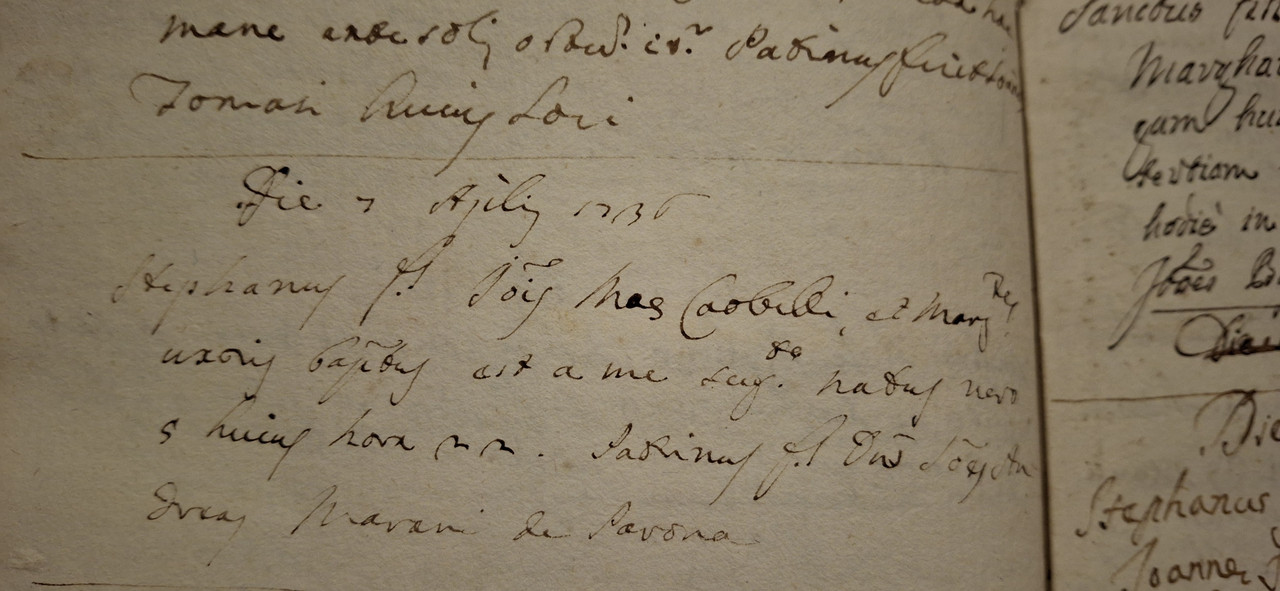 mane ante solis ortu'. it.' Patrinus fuit Joannes
Tomasi huius Loci
Die 7 Aprilis 1736
Stephanus f.s Jois Mae Caobelli, et Margtae
uxoris baptus est a me supdo. natus vero
5 huius hora 22. Patrinus f.s Dns Jões An
dreas Marani de Parona
Sanctus fili
Margha
quam hu
tertiam
hodie in
Joães
Die
Stephanus
Joannes